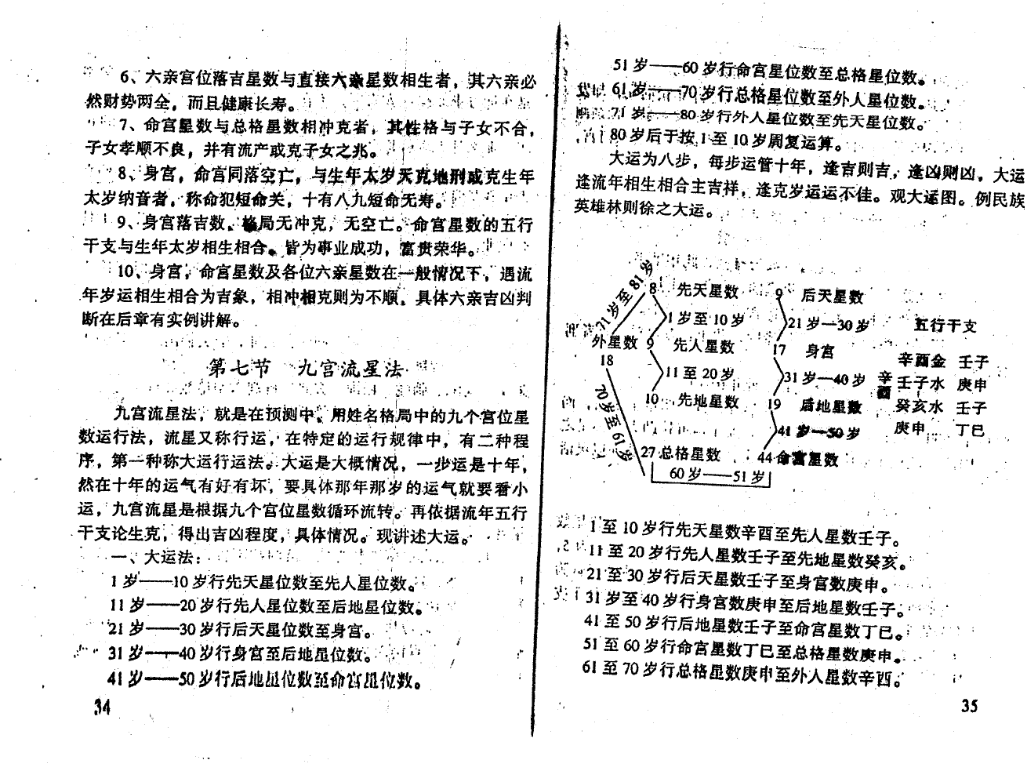 6、六亲宫位落吉星数与直接六亲星数相生者，其六亲必
然财势两全，而且健康长寿。
7、命宫星数与总格星数相冲克者，其性格与子女不合，
子女孝顺不良，并有流产或克子女之兆。
8、身宫，命宫同落空亡，与生年太岁天克地刑或克生年
太岁纳音者，称命犯短命关，十有八九短命无寿。
9、身宫落吉数。格局无冲克，无空亡。命宫星数的五行
干支与生年太岁相生相合。皆为事业成功，富贵荣华。
10、身宫，命宫星数及各位六亲星数在一般情况下，遇流
年岁运相生相合为吉象，相冲相克则为不顺。具体六亲吉凶判
断在后章有实例讲解。
第七节 九宫流星法
九宫流星法，就是在预测中，用姓名格局中的九个宫位星
数运行法，流星又称行运，在特定的运行规律中，有二种程
序，第一种称大运行运法。大运是大概情况，一步运是十年，
然在十年的运气有好有坏，要具体那年那岁的运气就要看小
运，九宫流星是根据九个宫位星数循环流转。再依据流年五行
干支论生克，得出吉凶程度，具体情况。现讲述大运。
一、大运法：
1岁——10岁行先天星位数至先人星位数。
11岁——20岁行先人星位数至后地星位数。
21岁——30岁行后天星位数至身宫。
31岁——40岁行身宫至后地星位数。
41岁——50岁行后地星位数至命宫星位数。
34
51岁——60岁行命宫星位数至总格星位数。
61岁——70岁行总格星位数至外人星位数。
71岁——80岁行外人星位数至先天星位数。
80岁后于按1至10岁周复运算。
大运为八步，每步运管十年，逢吉则吉，逢凶则凶，大运
逢流年相生相合主吉祥，逢克岁运运不佳。观大运图。例民族
英雄林则徐之大运。
71岁至81岁
8 先天星数 9 后天星数
1岁至10岁 21岁—30岁 五行干支
外星数 9 先人星数 17 身宫
18
辛酉金 壬子
11至20岁 31岁—40岁 辛酉 壬子水 庚申
10 先地星数 19 后地星数 癸亥水 壬子
70岁至61岁
41岁—50岁 庚申 丁巳
27总格星数 44命宫星数
60岁——51岁
1至10岁行先天星数辛酉至先人星数壬子。
11至20岁行先人星数壬子至先地星数癸亥。
21至30岁行后天星数壬子至身宫数庚申。
31岁至40岁行身宫数庚申至后地星数壬子。
41至50岁行后地星数壬子至命宫星数丁巳。
51至60岁行命宫星数丁巳至总格星数庚申。
61至70岁行总格星数庚申至外人星数辛酉。
35